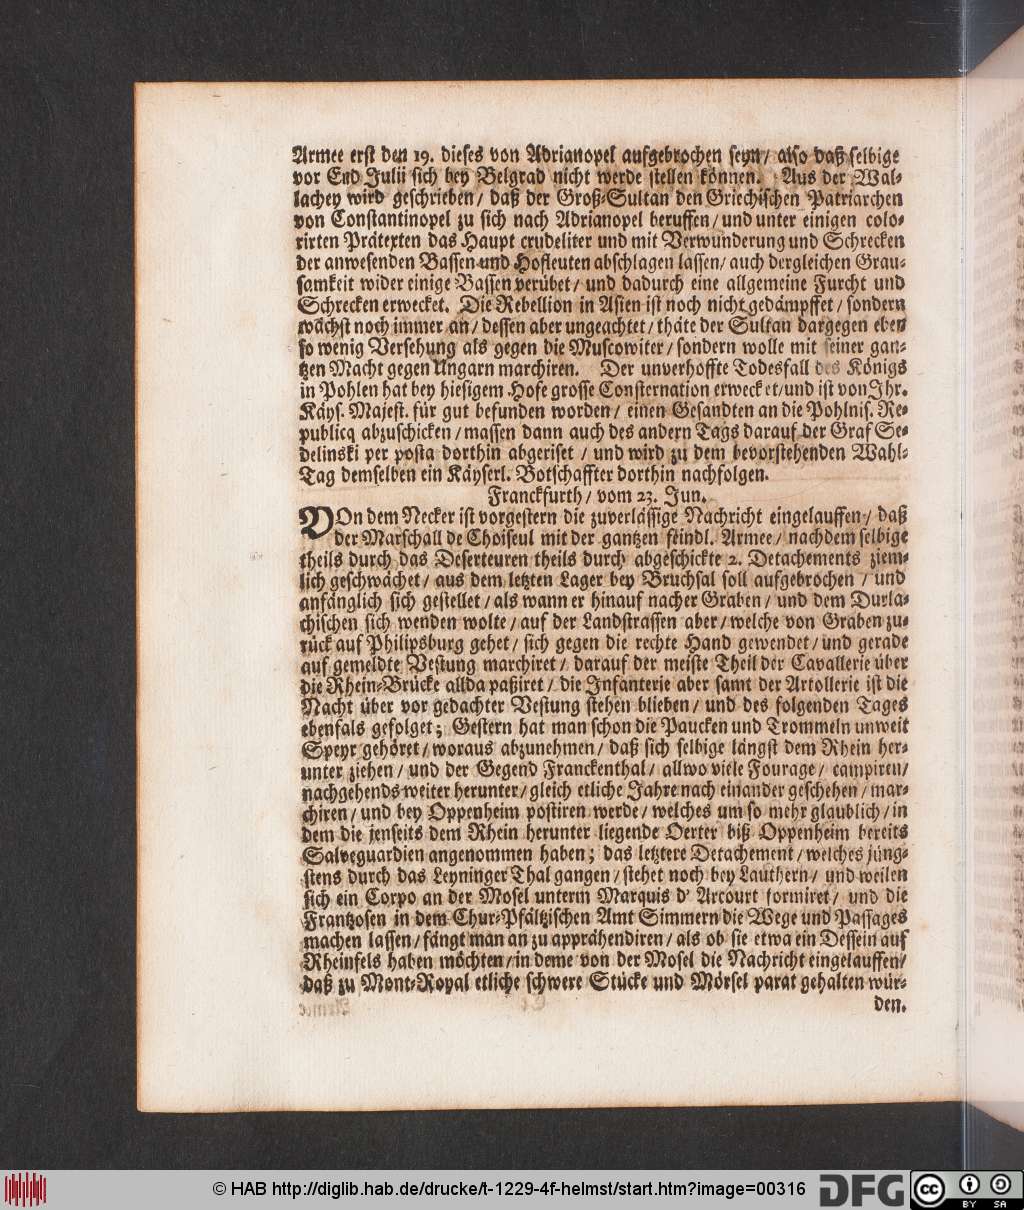 Armee erst den 19. dieses von Adrianopel aufgebrochen seyn / also daß selbige
vor End Julii sich bey Belgrad nicht werde stellen können. Aus der Wal-
lachey wird geschrieben / daß der Groß-Sultan den Griechischen Patriarchen
von Constantinopel zu sich nach Adrianopel beruffen / und unter einigen colo-
rirten Prätexten das Haupt crudeliter und mit Verwunderung und Schrecken
der anwesenden Bassen und Hofleuten abschlagen lassen / auch dergleichen Grau-
samkeit wider einige Bassen verübet / und dadurch eine allgemeine Furcht und
Schrecken erwecket. Die Rebellion in Asien ist noch nicht gedämpffet / sondern
wächst noch immer an / dessen aber ungeachtet / thäte der Sultan dargegen eben
so wenig Versehung als gegen die Muscowiter / sondern wolle mit seiner gan-
tzen Macht gegen Ungarn marchiren. Der unverhoffte Todesfall des Königs
in Pohlen hat bey hiesigem Hofe grosse Consternation erwecket / und ist von Ihr.
Käys. Majest. für gut befunden worden / einen Gesandten an die Pohlnis. Re-
publicq abzuschicken / massen dann auch des andern Tags darauf der Graf Se-
delinski per posta dorthin abgeriset / und wird zu dem bevorstehenden Wahl-
Tag demselben ein Käyserl. Botschaffter dorthin nachfolgen.
Franckfurth / vom 23. Jun.
VOn dem Necker ist vorgestern die zuverlässige Nachricht eingelauffen / daß
der Marschall de Choiseul mit der gantzen feindl. Armee / nachdem selbige
theils durch das Deserteuren theils durch abgeschickte 2. Detachements ziem-
lich geschwächet / aus dem letzten Lager bey Bruchsal soll aufgebrochen / und
anfänglich sich gestellet / als wann er hinauf nacher Graben / und dem Durla-
chischen sich wenden wolte / auf der Landstrassen aber / welche von Graben zu-
rück auf Philipsburg gehet / sich gegen die rechte Hand gewendet / und gerade
auf gemeldte Vestung marchiret / darauf der meiste Theil der Cavallerie über
die Rhein-Brücke allda paßiret / die Infanterie aber samt der Artollerie ist die
Nacht über vor gedachter Vestung stehen blieben / und des folgenden Tages
ebenfals gefolget; Gestern hat man schon die Paucken und Trommeln unweit
Speyr gehöret / woraus abzunehmen / daß sich selbige längst dem Rhein her-
unter ziehen / und der Gegend Franckenthal / allwo viele Fourage / campiren /
nachgehends weiter herunter / gleich etliche Jahre nach einander geschehen / mar-
chiren / und bey Oppenheim postiren werde / welches um so mehr glaublich / in
dem die jenseits dem Rhein herunter liegende Oerter biß Oppenheim bereits
Salveguardien angenommen haben; das letztere Detachement / welches jüng-
stens durch das Leyninger Thal gangen / stehet noch bey Lauthern / und weilen
sich ein Corpo an der Mosel unterm Marquis d' Arcourt formiret / und die
Frantzosen in dem Chur-Pfältzischen Amt Simmern die Wege und Passages
machen lassen / fängt man an zu apprähendiren / als ob sie etwa ein Dessein auf
Rheinfels haben möchten / in deme von der Mosel die Nachricht eingelauffen /
daß zu Mont-Royal etliche schwere Stücke und Mörsel parat gehalten wür-
den.
© HAB http://diglib.hab.de/drucke/t-1229-4f-helmst/start.htm?image=00316
DFG
cc BY SA